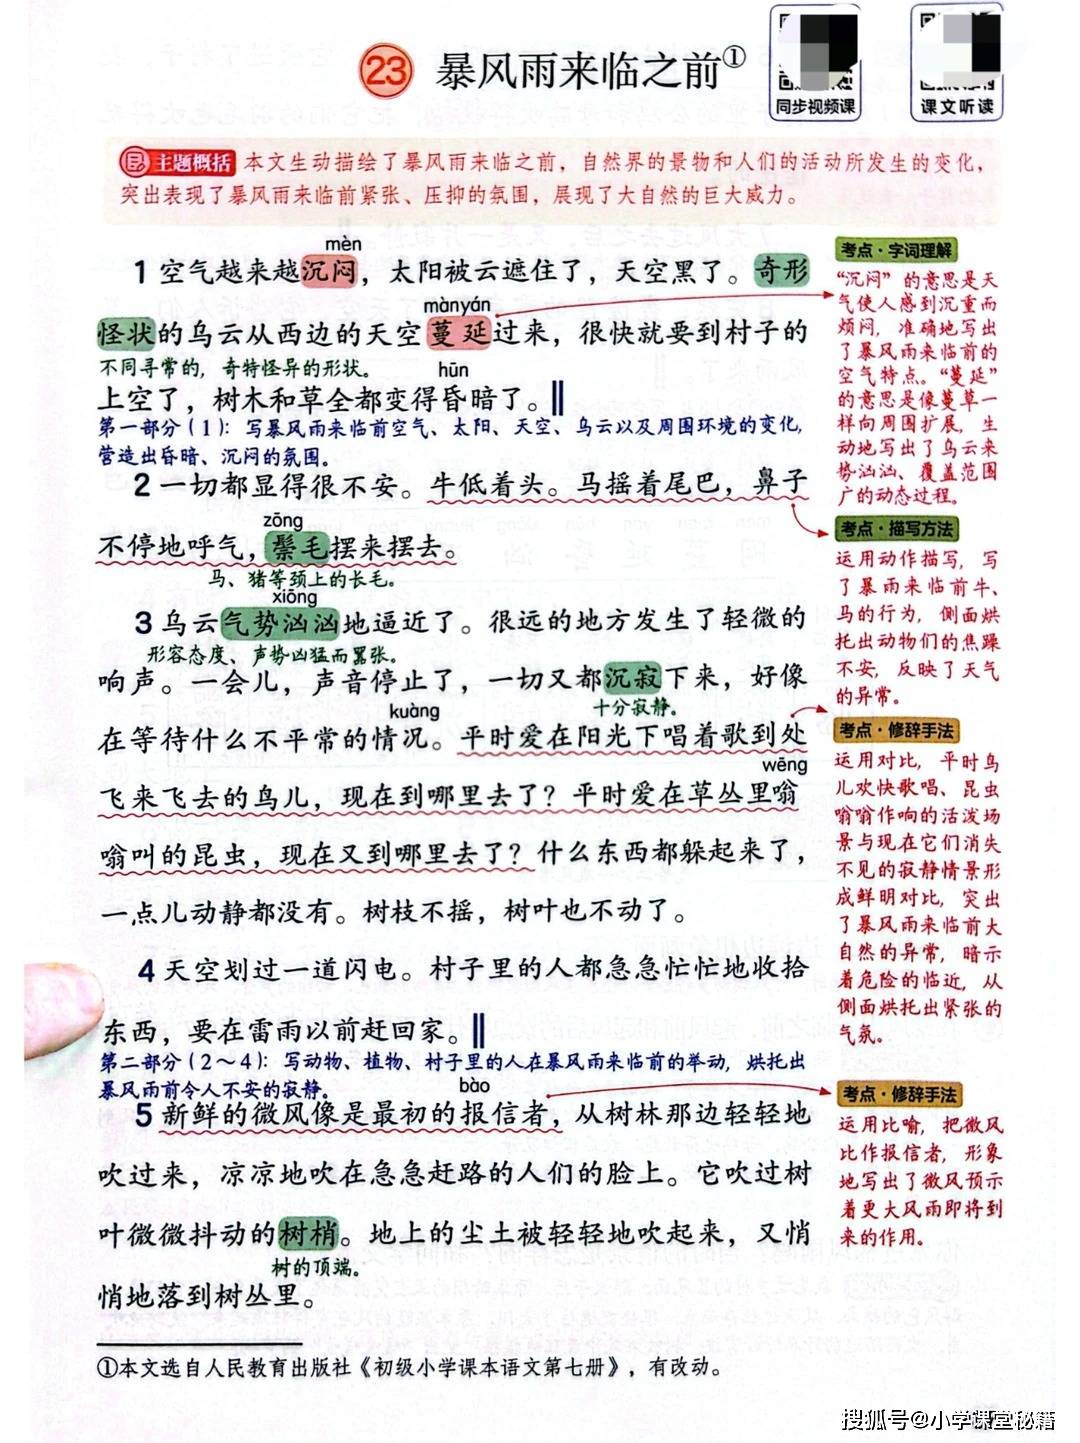 23 暴风雨来临之前①
同步视频课
课文听读
主题概括 本文生动描绘了暴风雨来临之前，自然界的景物和人们的活动所发生的变化，
突出表现了暴风雨来临前紧张、压抑的氛围，展现了大自然的巨大威力。
mèn
1 空气越来越沉闷，太阳被云遮住了，天空黑了。奇形
mànyán
怪状的乌云从西边的天空蔓延过来，很快就要到村子的
不同寻常的，奇特怪异的形状。
hūn
上空了，树木和草全都变得昏暗了。‖
第一部分（1）：写暴风雨来临前空气、太阳、天空、乌云以及周围环境的变化，
营造出昏暗、沉闷的氛围。
2 一切都显得很不安。牛低着头。马摇着尾巴，鼻子
zōng
不停地呼气，鬃毛摆来摆去。
马、猪等颈上的长毛。
xiōng
3 乌云气势汹汹地逼近了。很远的地方发生了轻微的
形容态度、声势凶猛而嚣张。
响声。一会儿，声音停止了，一切又都沉寂下来，好像
十分寂静。
kuàng
在等待什么不平常的情况。平时爱在阳光下唱着歌到处
wēng
飞来飞去的鸟儿，现在到哪里去了？平时爱在草丛里嗡
嗡叫的昆虫，现在又到哪里去了？什么东西都躲起来了，
一点儿动静都没有。树枝不摇，树叶也不动了。
4 天空划过一道闪电。村子里的人都急急忙忙地收拾
东西，要在雷雨以前赶回家。‖
第二部分（2～4）：写动物、植物、村子里的人在暴风雨来临前的举动，烘托出
暴风雨前令人不安的寂静。
bào
5 新鲜的微风像是最初的报信者，从树林那边轻轻地
吹过来，凉凉地吹在急急赶路的人们的脸上。它吹过树
叶微微抖动的树梢。地上的尘土被轻轻地吹起来，又悄
树的顶端。
悄地落到树丛里。
①本文选自人民教育出版社《初级小学课本语文第七册》，有改动。
考点·字词理解
“沉闷”的意思是天
气使人感到沉重而
烦闷，准确地写出
了暴风雨来临前的
空气特点。“蔓延”
的意思是像蔓草一
样向周围扩展，生
动地写出了乌云来
势汹汹、覆盖范围
广的动态过程。
考点·描写方法
运用动作描写，写
了暴雨来临前牛、
马的行为，侧面烘
托出动物们的焦躁
不安，反映了天气
的异常。
考点·修辞手法
运用对比，平时鸟
儿欢快歌唱、昆虫
嗡嗡作响的活泼场
景与现在它们消失
不见的寂静情景形
成鲜明对比，突出
了暴风雨来临前大
自然的异常，暗示
着危险的临近，从
侧面烘托出紧张的
气氛。
考点·修辞手法
运用比喻，把微风
比作报信者，形象
地写出了微风预示
着更大风雨即将到
来的作用。
搜狐号@小学课堂秘籍